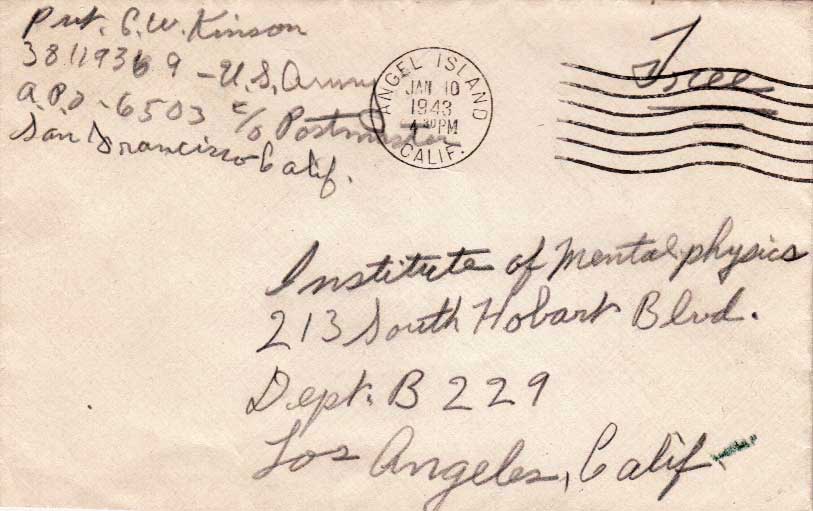 Pvt. C. W. Kinson
38119369 - U.S. Army
A.P.O. - 6503 c/o Postmaster
San Francisco Calif.
ANGEL ISLAND
JAN 10
1943
4 30 PM
CALIF.
Free
Institute of Mentalphysics
213 South Hobart Blvd.
Dept. B 229
Los Angeles, Calif.